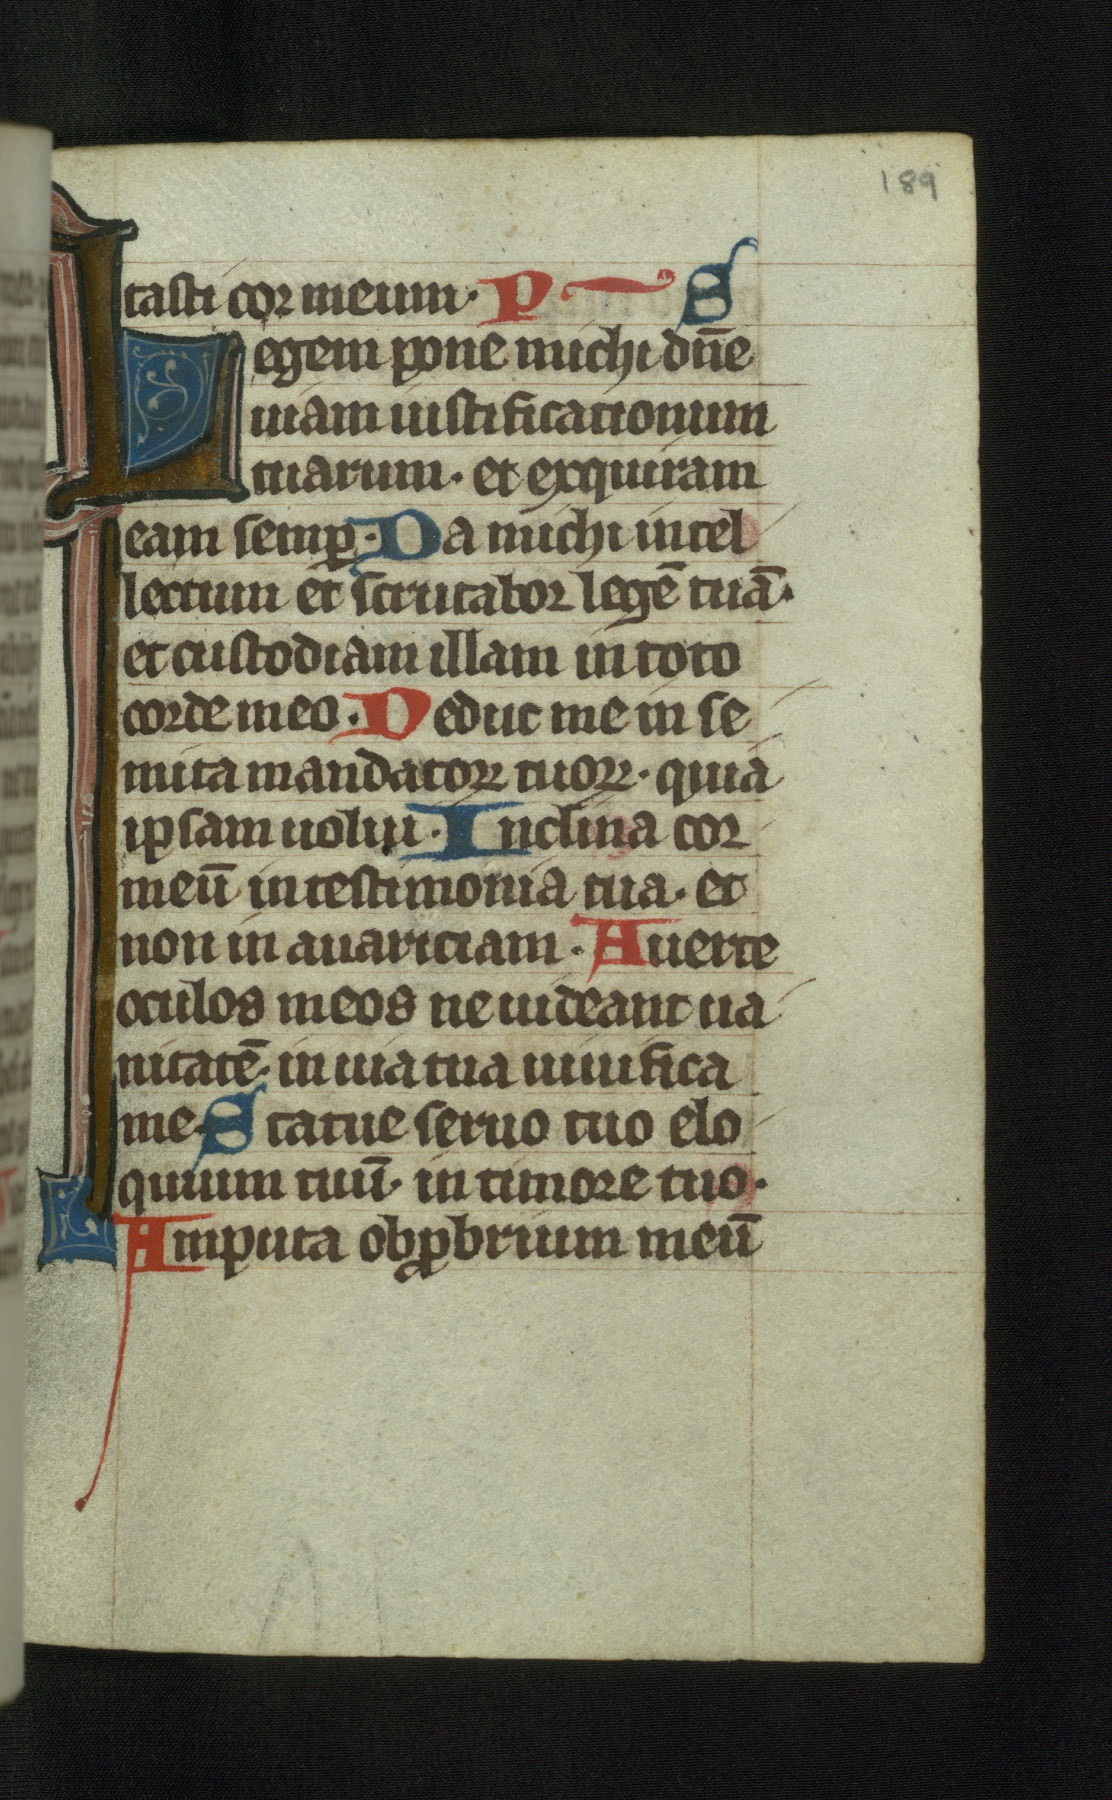 189
tasti cor meum. P S
Legem pone michi dn̄e
uiam iustificationum
tuarum. et exquiram
eam semꝑ. Da michi intel
lectum et scrutabor legē tuā.
et custodiam illam in toto
corde meo. Deduc me in se
mita mandatoꝝ tuoꝝ. quia
ipsam uolui. Inclina cor
meū in testimonia tua. et
non in auariciam. Auerte
oculos meos ne uideant ua
nitatē. in uia tua uiuifica
me. Statue seruo tuo elo
quium tuū. in timore tuo.
Amputa obꝓbrium meū